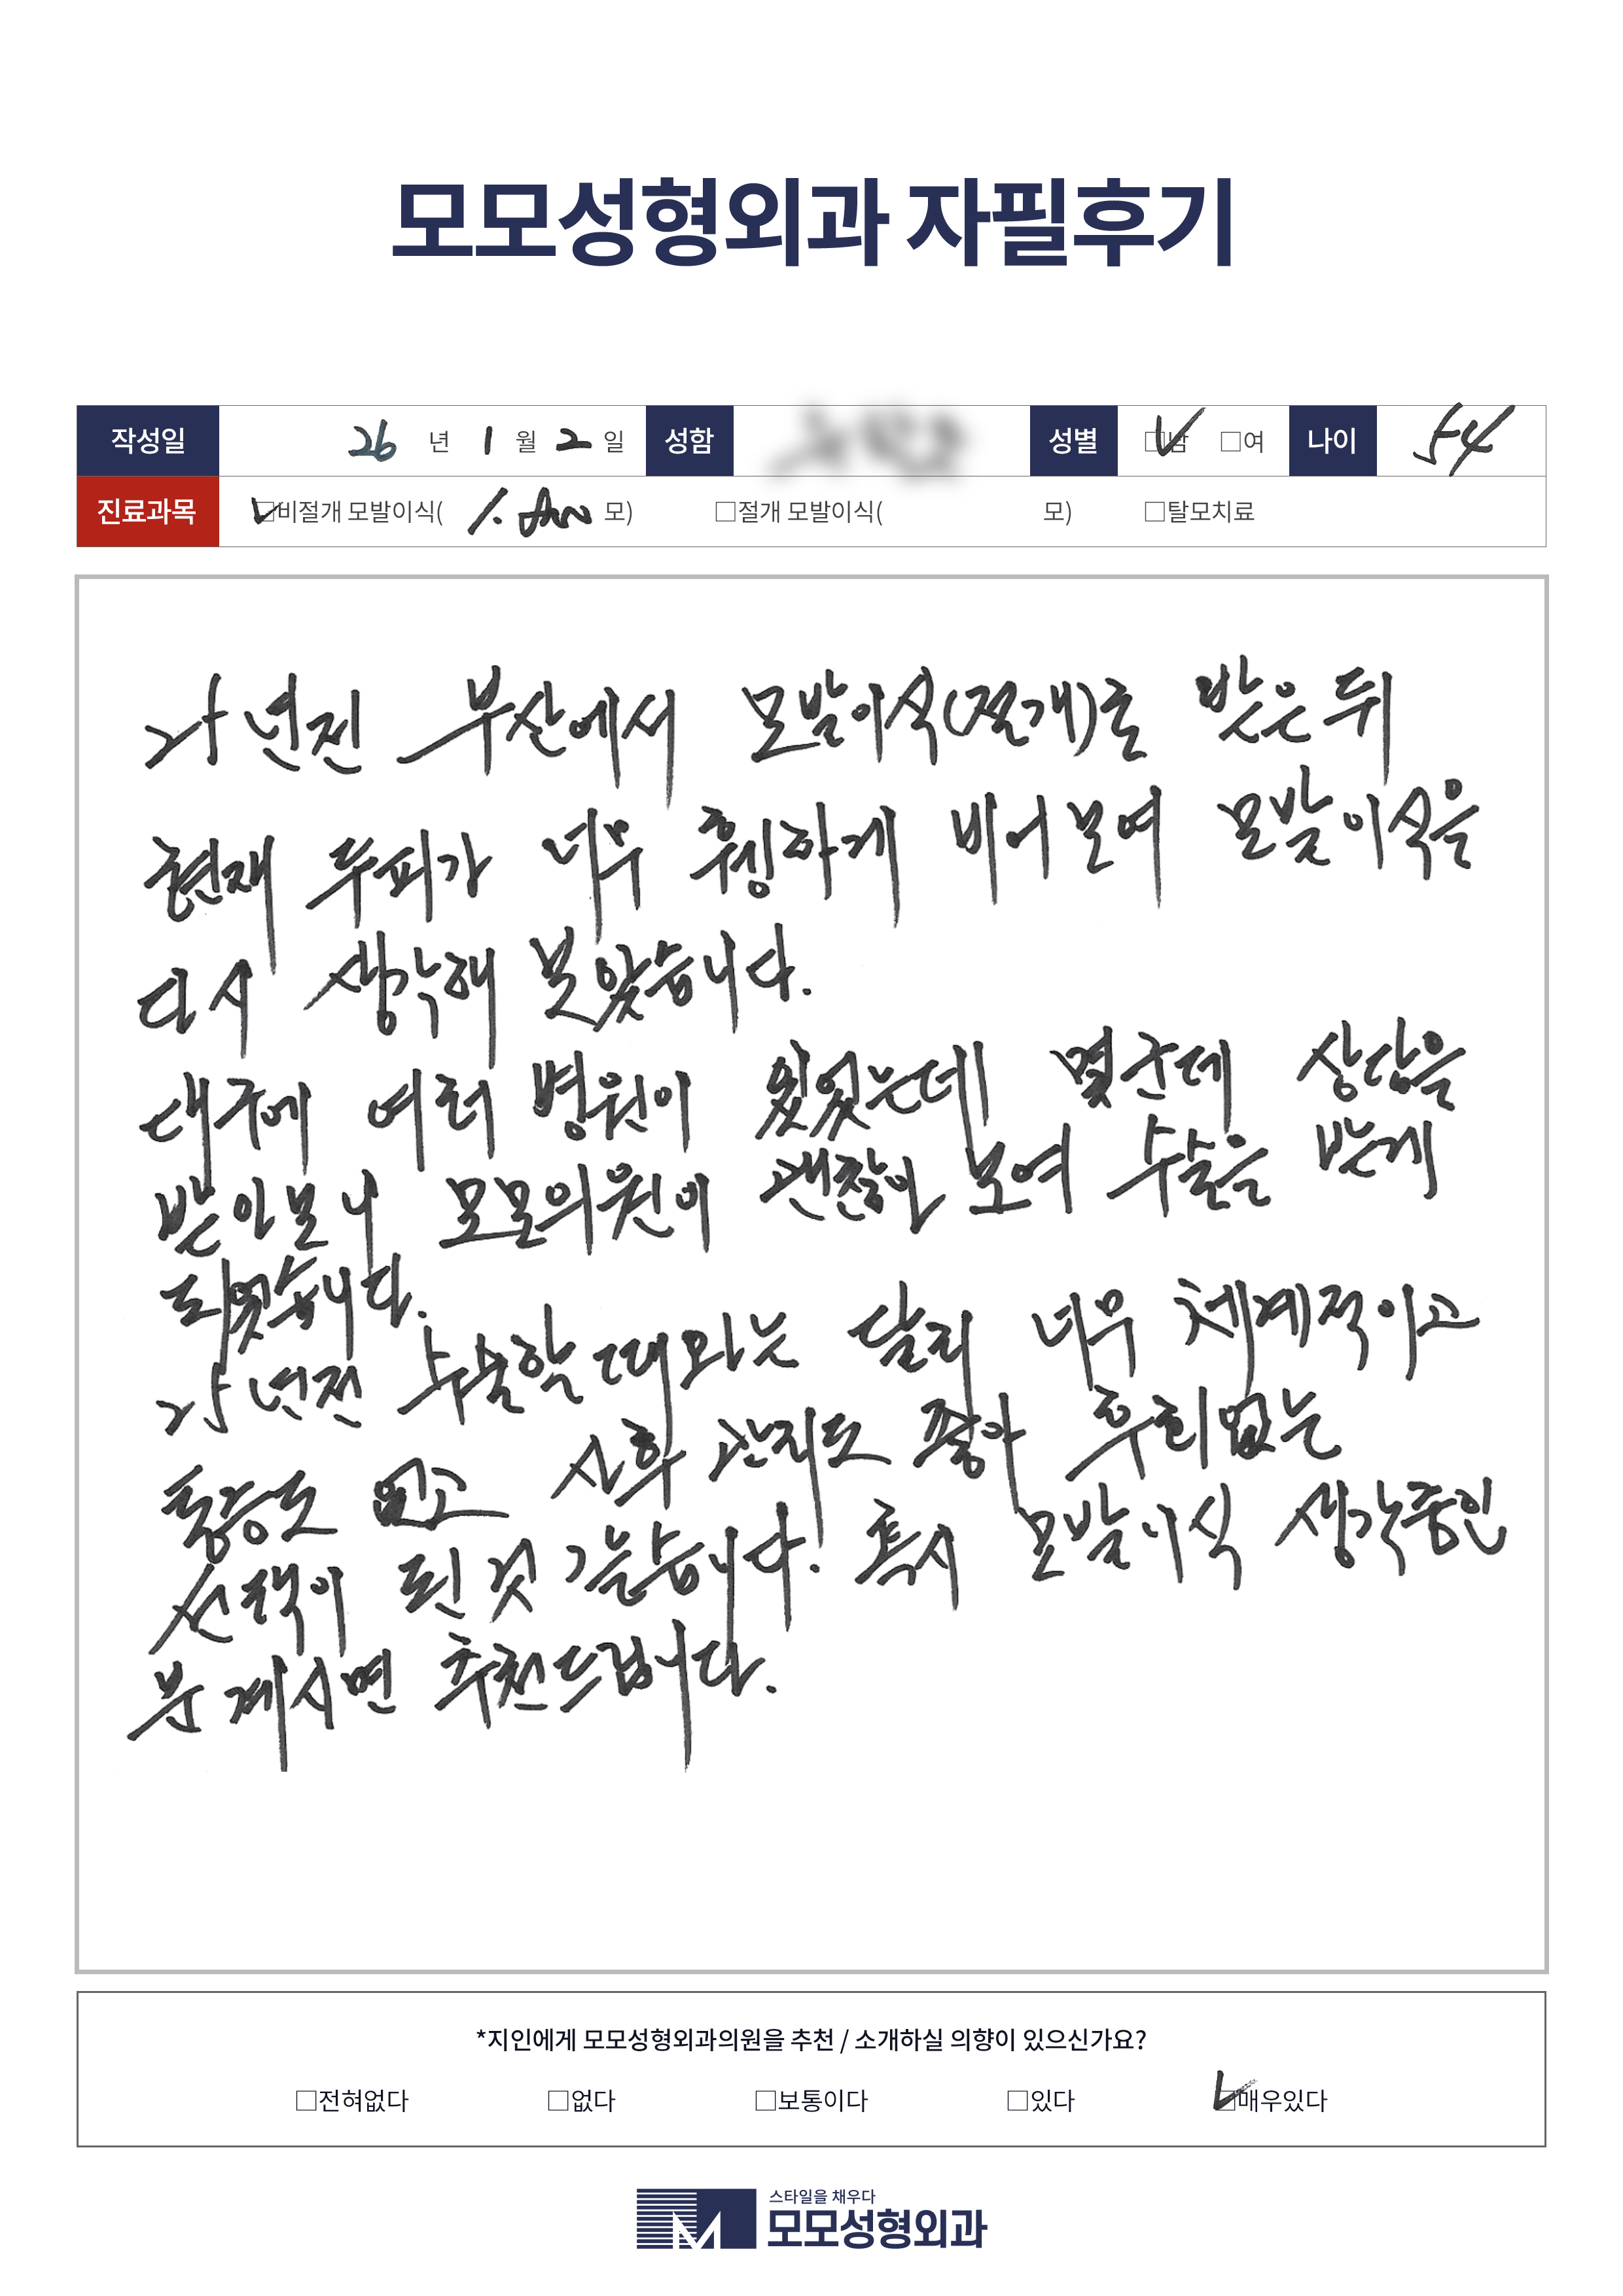 모모성형외과 자필후기
작성일 26 년 1 월 2 일 성함 성별 ☑남 □여 나이 54
진료과목 ☑비절개 모발이식( 모) □절개 모발이식( 모) □탈모치료
25년전 부산에서 모발이식(절개)를 받은 뒤
현재 두피가 너무 휑하게 비어보여 모발이식을
다시 생각해 보았습니다.
대구에 여러 병원이 있었는데 몇군데 상담을
받아보니 모모의원이 괜찮아 보여 수술을 받게
되었습니다.
25년전 수술할때와는 달리 너무 체계적이고
통증도 없고 사후 관리도 좋아 후회없는
선택이 된 것 같습니다. 혹시 모발이식 생각중인
분 계시면 추천드립니다.
*지인에게 모모성형외과의원을 추천 / 소개하실 의향이 있으신가요?
□전혀없다 □없다 □보통이다 □있다 ☑매우있다
스타일을 채우다
모모성형외과